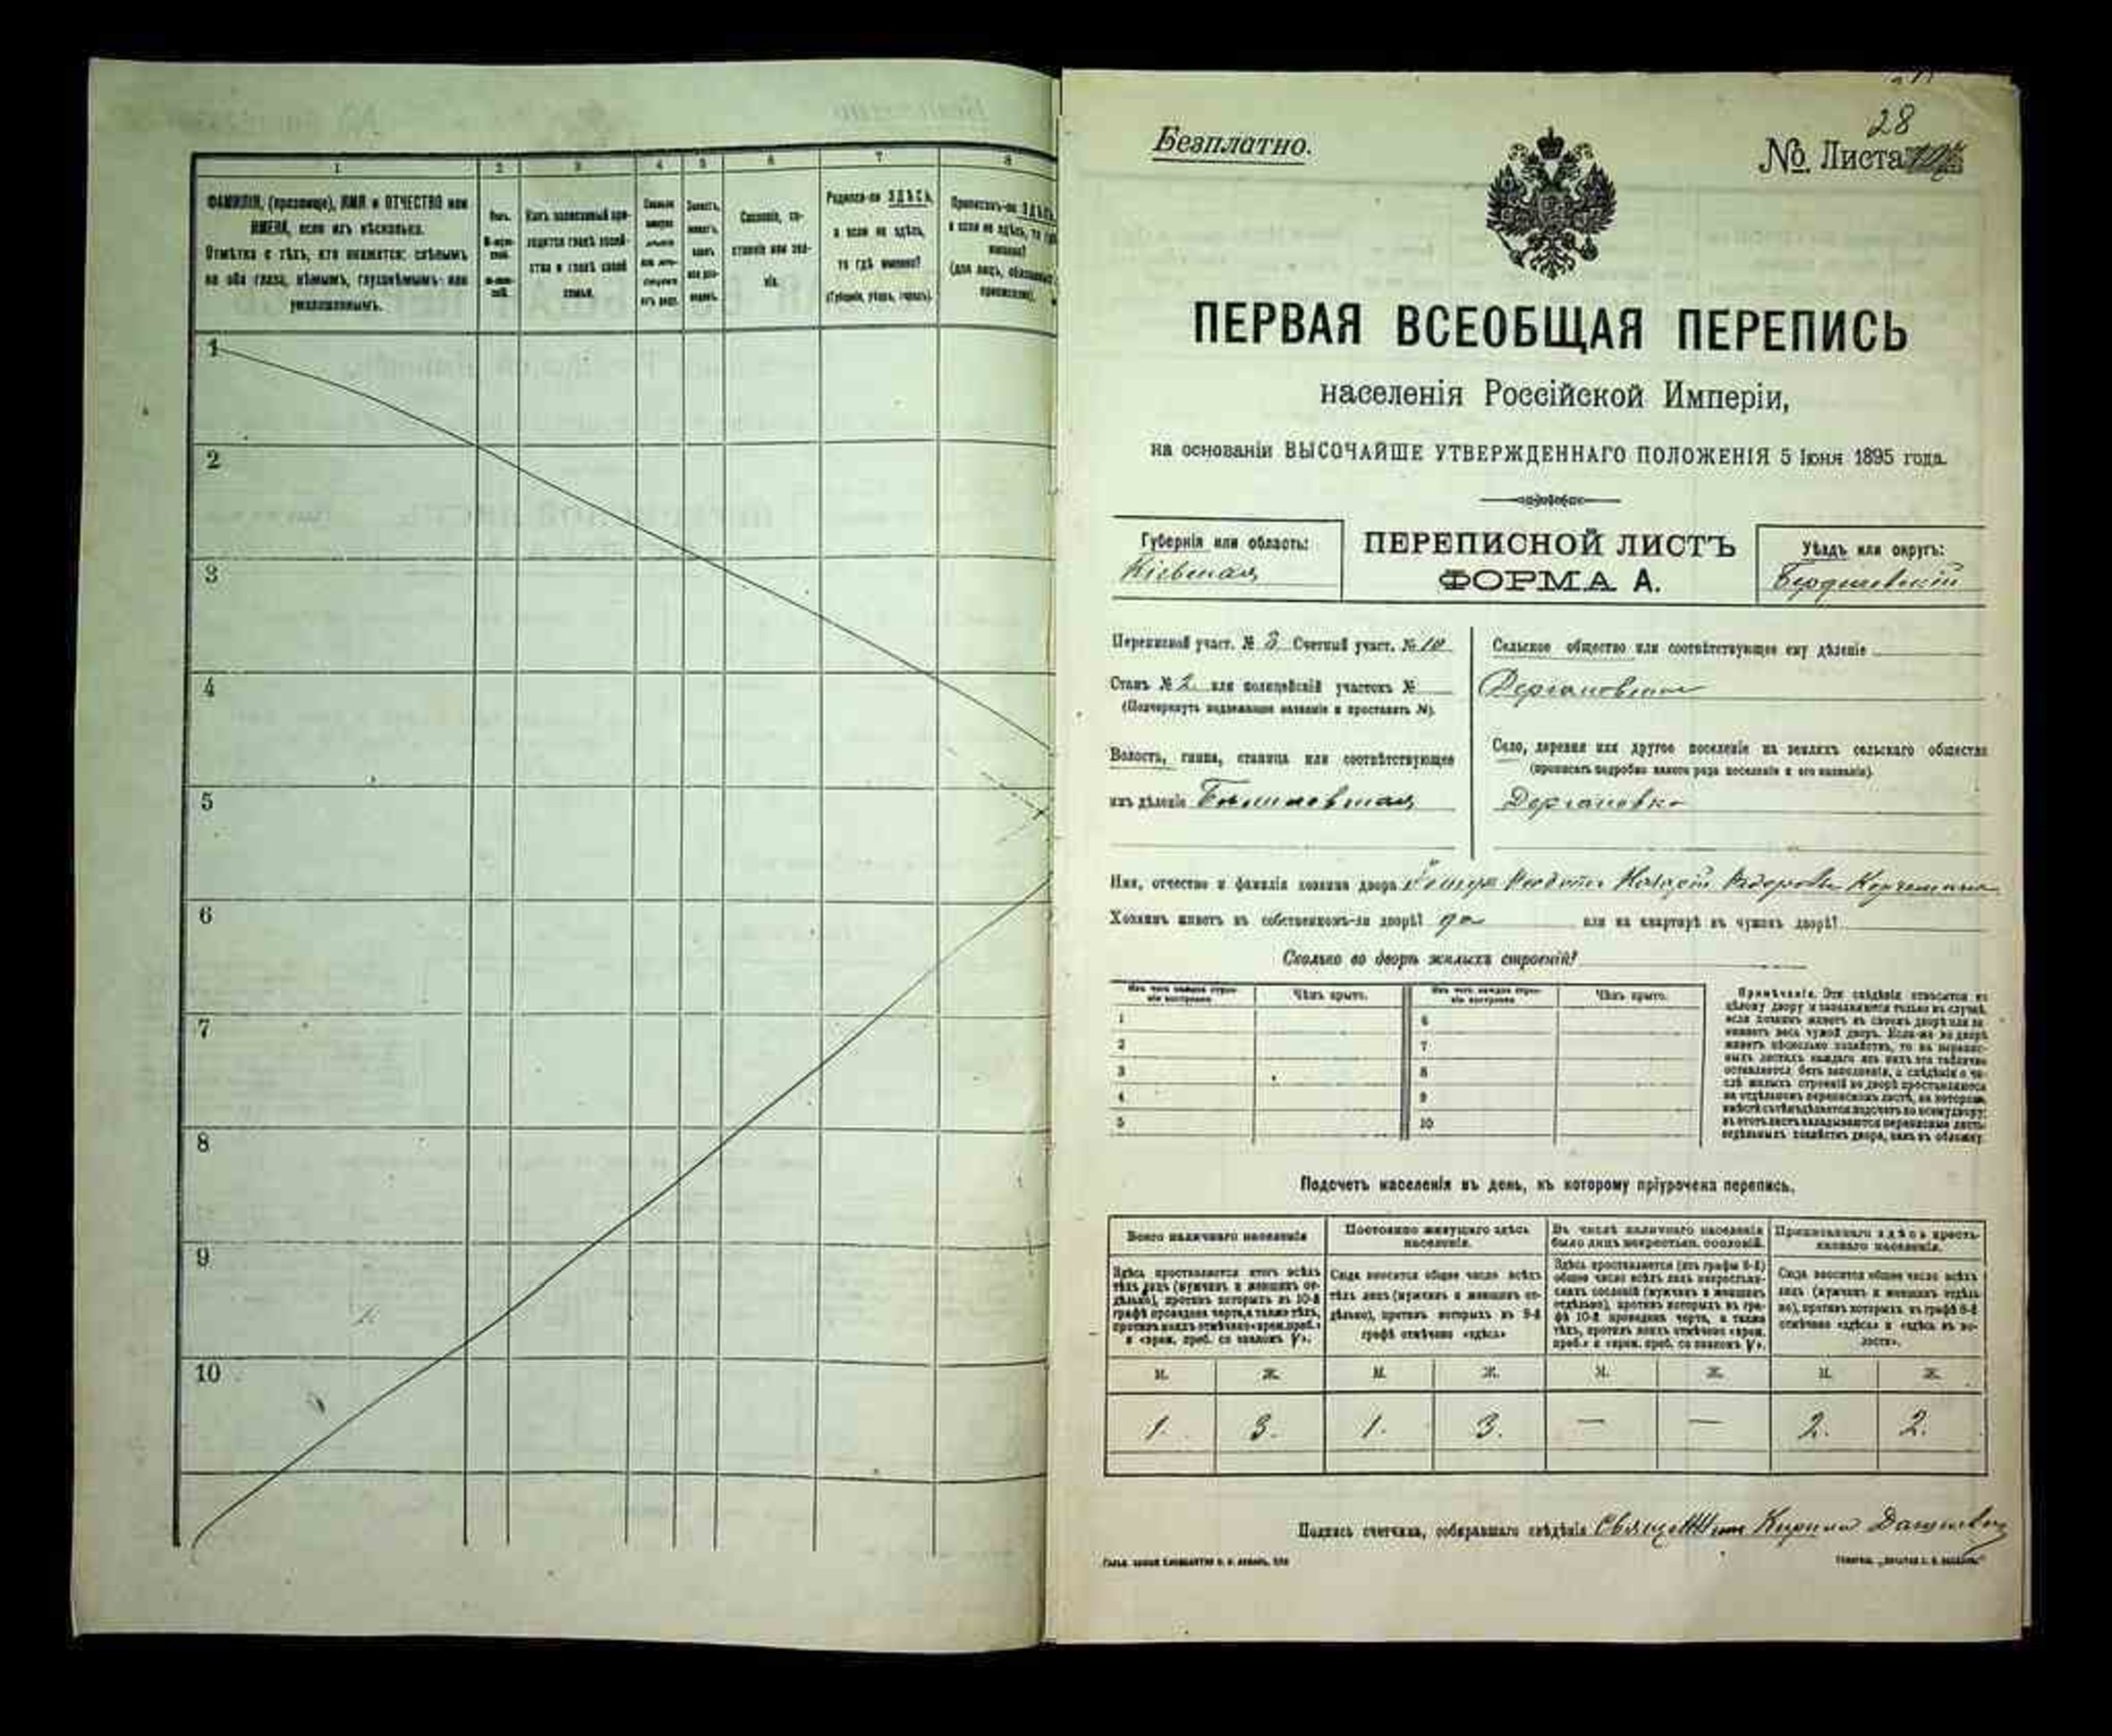 1 2 3 4 5 6 7 8
ФАМИЛІЯ, (прозвище), ИМЯ и ОТЧЕСТВО или
ИМЕНА, если ихъ нѣсколько.
Отмѣтка о тѣхъ, кто окажется: слѣпымъ
на оба глаза, нѣмымъ, глухонѣмымъ или
умалишеннымъ.
Полъ.
Какъ записанный при-
ходится главѣ хозяй-
ства и главѣ своей
семьи.
Сословіе, со-
стояніе или зва-
ніе.
Родился-ли ЗДѢСЬ,
а если не здѣсь,
то гдѣ именно?
(Губернія, уѣздъ, городъ).
Приписанъ-ли ЗДѢСЬ,
а если не здѣсь, то гдѣ
именно?
(для лицъ, обязанныхъ
припискою).
1
2
3
4
5
6
7
8
9
10
28
Безплатно.
№ Листа
ПЕРВАЯ ВСЕОБЩАЯ ПЕРЕПИСЬ
населенія Россійской Имперіи,
на основаніи ВЫСОЧАЙШЕ УТВЕРЖДЕННАГО ПОЛОЖЕНІЯ 5 Іюня 1895 года.
Губернія или область:
Кіевская
ПЕРЕПИСНОЙ ЛИСТЪ
ФОРМА А.
Уѣздъ или округъ:
Бердичевскій
Переписной участ. № 3 Счетный участ. № 10
Сельское общество или соотвѣтствующее ему дѣленіе
Станъ № 2 или полицейскій участокъ №
(Подчеркнуть надлежащее названіе и проставить №).
Волость, гмина, станица или соотвѣтствующее
имъ дѣленіе
Село, деревня или другое поселеніе на земляхъ сельскаго общества
(прописать подробно какого рода поселеніе и его названіе).
Дергановка
Имя, отчество и фамилія хозяина двора
Хозяинъ живетъ въ собственномъ-ли дворѣ? да или на квартирѣ въ чужомъ дворѣ?
Сколько во дворѣ жилыхъ строеній?
Изъ чего каждое строе-
ніе построено
Чѣмъ крыто.
Изъ чего каждое строе-
ніе построено
Чѣмъ крыто.
1 6
2 7
3 8
4 9
5 10
Примѣчаніе. Эти свѣдѣнія относятся къ
цѣлому двору и заполняются только въ случаѣ,
если хозяинъ живетъ въ своемъ дворѣ или за-
нимаетъ весь чужой дворъ. Если-же во дворѣ
живетъ нѣсколько хозяйствъ, то на перепис-
ныхъ листахъ каждаго изъ нихъ эта табличка
оставляется безъ заполненія, а свѣдѣнія о чи-
слѣ жилыхъ строеній во дворѣ проставляются
на отдѣльномъ переписномъ листѣ, на которомъ
вмѣстѣ съ тѣмъ дѣлается подсчетъ по всему двору;
въ этотъ листъ вкладываются переписные листы
отдѣльныхъ хозяйствъ двора, какъ въ обложку.
Подсчетъ населенія въ день, къ которому пріурочена перепись.
Всего наличнаго населенія
Здѣсь проставляется итогъ всѣхъ
тѣхъ лицъ (мужчинъ и женщинъ от-
дѣльно), противъ которыхъ въ 10-й
графѣ проведена черта, а также тѣхъ,
противъ коихъ отмѣчено «врем. преб.»
и «врем. преб. со знакомъ V».
Постоянно живущаго здѣсь
населенія.
Сюда вносится общее число всѣхъ
тѣхъ лицъ (мужчинъ и женщинъ от-
дѣльно), противъ которыхъ въ 9-й
графѣ отмѣчено «здѣсь»
Въ числѣ наличнаго населенія
было лицъ некрестьян. сословій.
Здѣсь проставляется (изъ графы 6-й)
общее число всѣхъ лицъ некрестьян-
скихъ сословій (мужчинъ и женщинъ
отдѣльно), противъ которыхъ въ гра-
фѣ 10-й проведена черта, а также
тѣхъ, противъ коихъ отмѣчено «врем.
преб.» и «врем. преб. со знакомъ V».
Приписаннаго здѣсь кресть-
янскаго населенія.
Сюда вносится общее число всѣхъ
лицъ (мужчинъ и женщинъ отдѣль-
но), противъ которыхъ въ графѣ 8-й
отмѣчено «здѣсь» и «здѣсь въ во-
лости».
М. Ж. М. Ж. М. Ж. М. Ж.
1. 3. 1. 3. — — 2. 2.
Подпись счетчика, собиравшаго свѣдѣнія